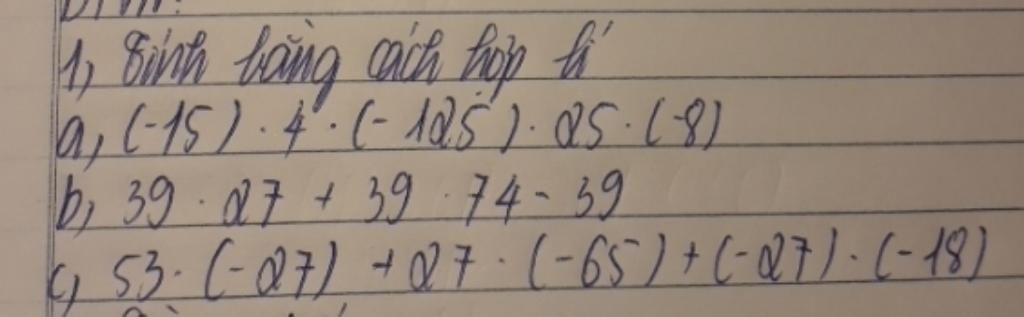 1, Tính bằng cách hợp lí
a, (-15) . 4 . (-125) . 25 . (-8)
b, 39 . 27 + 39 . 74 - 39
c, 53 . (-27) + 27 . (-65) + (-27) . (-18)